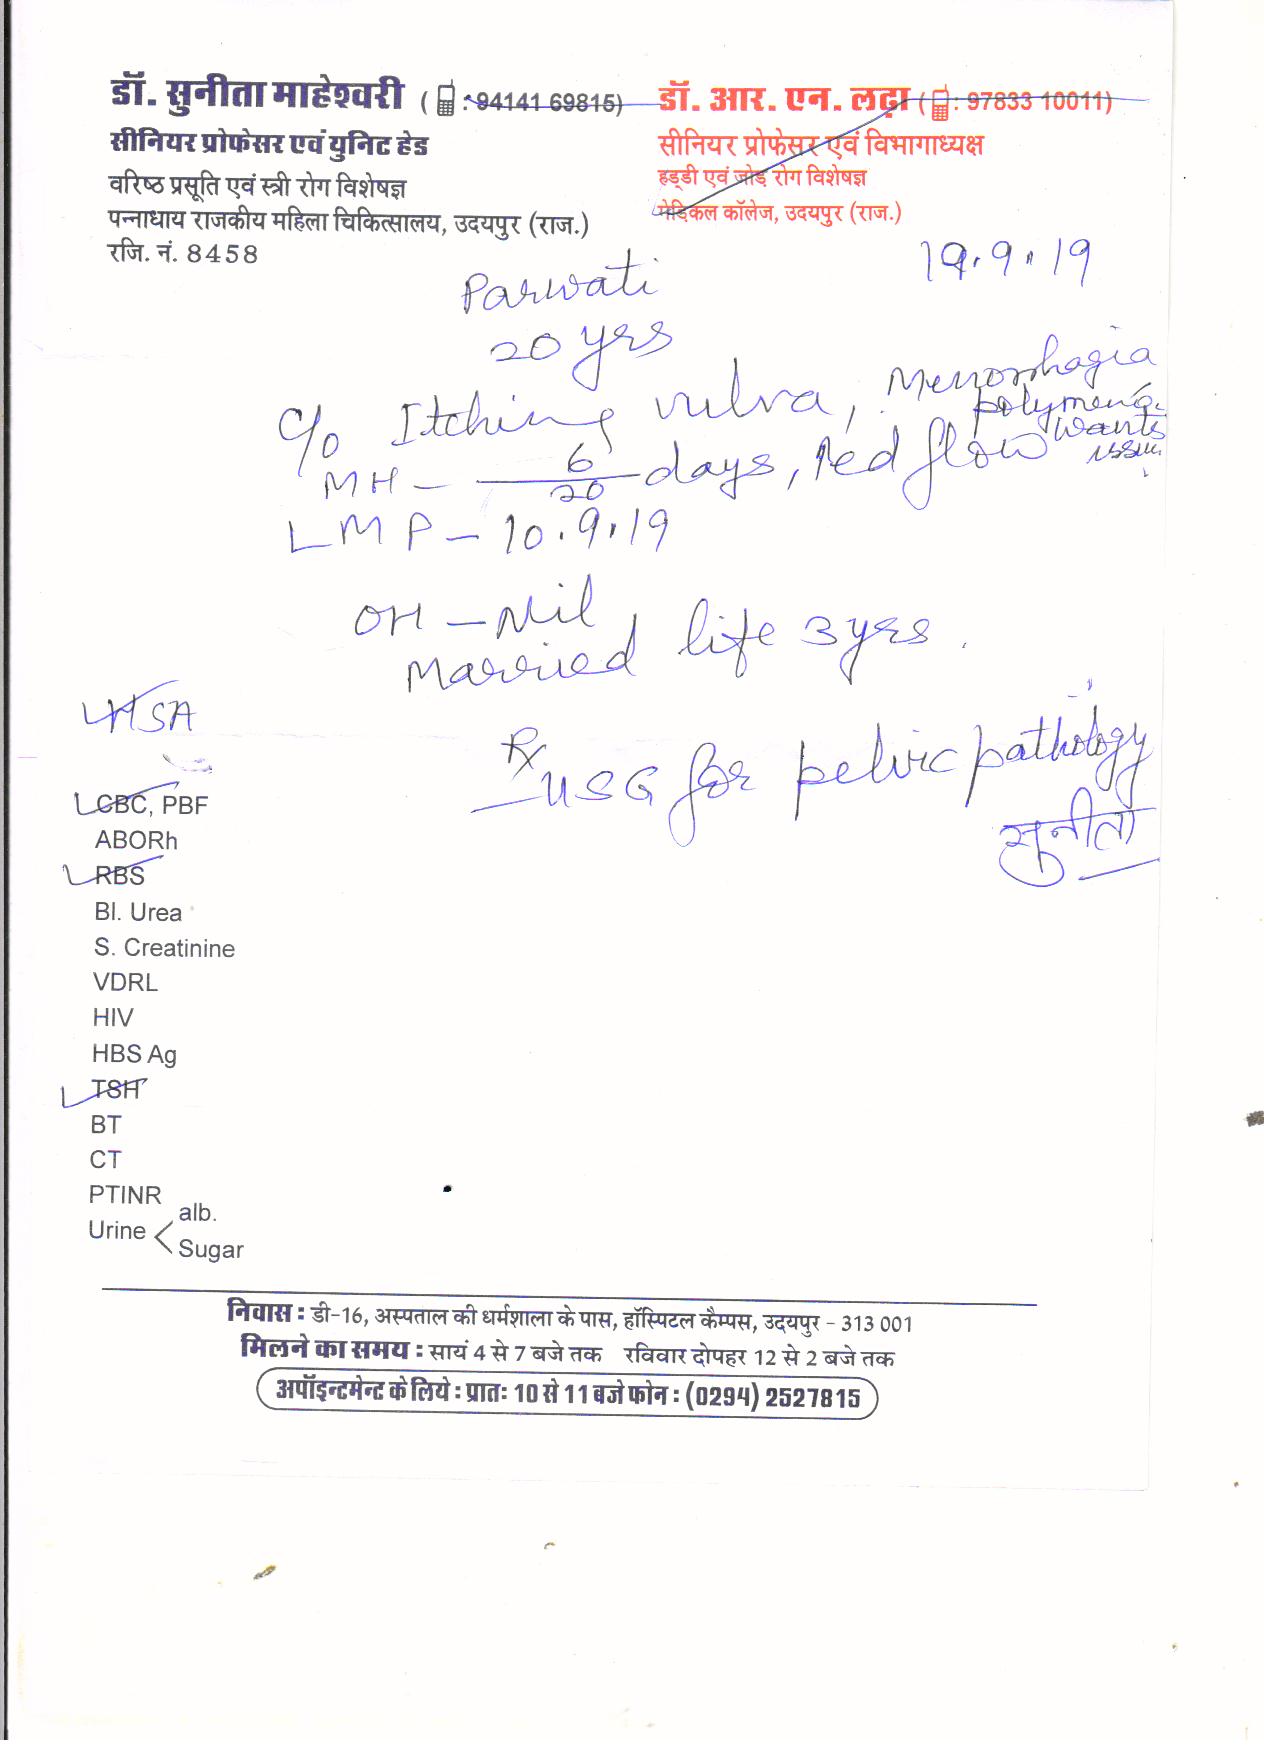 डॉ. सुनीता माहेश्वरी ( : 94141 69815)
सीनियर प्रोफेसर एवं युनिट हेड
वरिष्ठ प्रसूति एवं स्त्री रोग विशेषज्ञ
पन्नाधाय राजकीय महिला चिकित्सालय, उदयपुर (राज.)
रजि. नं. 8458
डॉ. आर. एन. लढ़ा ( : 97833 10011)
सीनियर प्रोफेसर एवं विभागाध्यक्ष
हड्डी एवं जोड़ रोग विशेषज्ञ
मेडिकल कॉलेज, उदयपुर (राज.)
19.9.19
Parwati
20 yrs
c/o Itching vulva, Menorrhagia
polymeno.
wants
issue
MH - 6/20 days, red flow
LMP - 10.9.19
OH - Nil
Married life 3 yrs.
HSA
Rx
USG for pelvic pathology
सुनीता
CBC, PBF
ABORh
RBS
Bl. Urea
S. Creatinine
VDRL
HIV
HBS Ag
TSH
BT
CT
PTINR
Urine < alb.
Sugar
निवास : डी-16, अस्पताल की धर्मशाला के पास, हॉस्पिटल कैम्पस, उदयपुर - 313 001
मिलने का समय : सायं 4 से 7 बजे तक रविवार दोपहर 12 से 2 बजे तक
अपॉइन्टमेन्ट के लिये : प्रातः 10 से 11 बजे फोन : (0294) 2527815